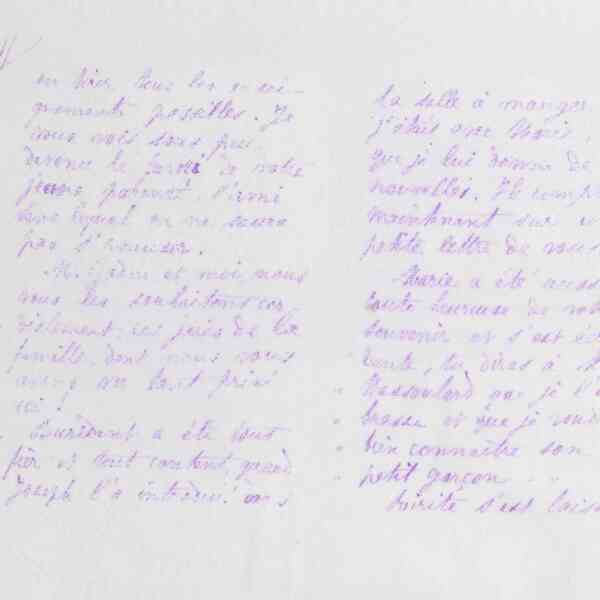 en tirer tous les ensei-
gnements possibles. Je
vous vois sous peu
devenu le favori de votre
jeune parenté, l'ami
sans lequel on ne saura
pas s'amuser.
M. et moi, nous
vous les souhaitons cor-
dialement, ces joies de la
famille, dont nous vous
avons au tant privé
ici !
a été tout
fier et tout content quand
Joseph l'a introduit dans
la salle à manger
j'étais avec Marie,
que je lui donne de
nouvelles. Il compte
maintenant sur une
petite lettre de vous
Marie a été aussi
toute heureuse de votre
souvenir et s'est
tu diras à M
que je l'em
brasse et que je voudrais
bien connaître son
petit garçon
s'est